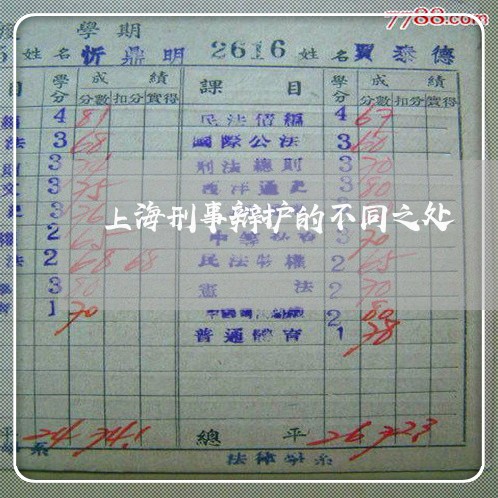 7788.com
學期
姓名 忻鼎明 2616 姓名 賈泰德
目 學分 成績 課目 學分 成績
分數 扣分 實得 分數 扣分 實得
4 81 民法債編 4 67
法 3 68 國際公法 3 60
3 刑法總則 3 70
文 3 75 西洋通史 3 80
3 76
上海刑事辩护的不同之处
權 2 65 3 70
法 2 68 68 民法物權 2 65
3 80 憲法 2 70
育 1 70 2 80
普通體育 1 78
平 24 74.1 總平 26 72.3
系 法律學系